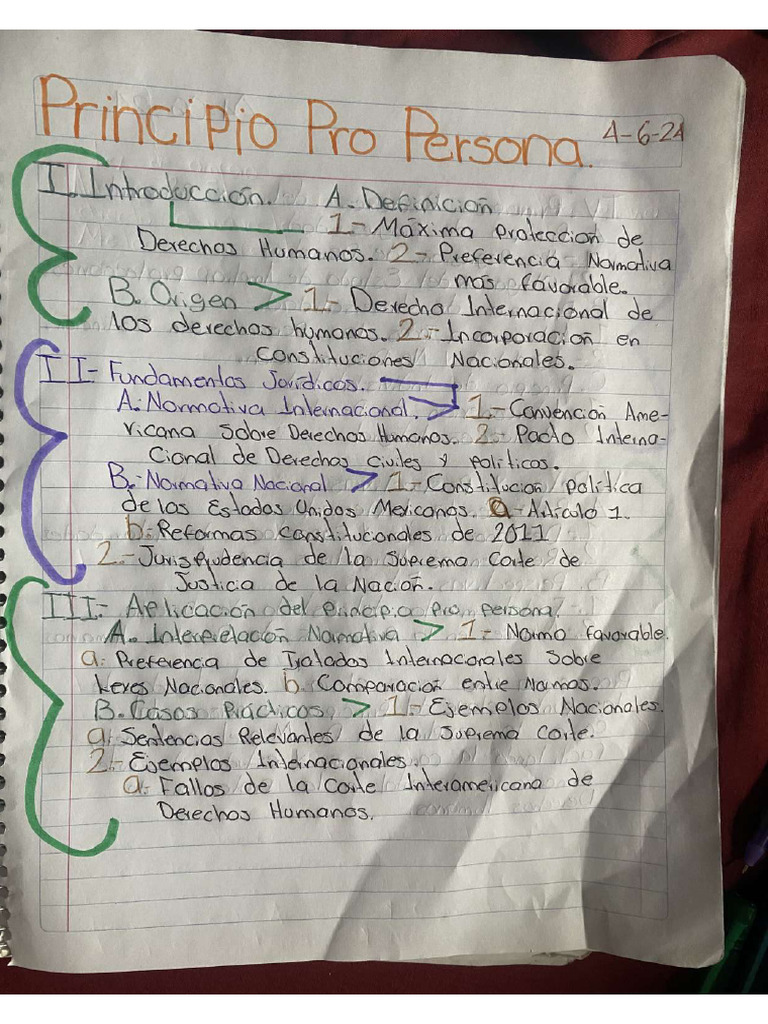 Principio Pro Persona. 4-6-24
I. Introducción. A. Definición
1.- Máxima Protección de
Derechos Humanos. 2.- Preferencia Normativa
más favorable.
B. Origen > 1.- Derecho Internacional de
los derechos humanos. 2.- Incorporación en
Constituciones Nacionales.
II- Fundamentos Jurídicos.
A. Normativa Internacional. > 1.- Convención Ame-
ricana Sobre Derechos Humanos. 2.- Pacto Interna-
cional de Derechos Civiles y Políticos.
B.- Normativa Nacional > 1.- Constitución política
de los Estados Unidos Mexicanos. a- Artículo 1.
b. Reformas Constitucionales de 2011
2.- Jurisprudencia de la Suprema Corte de
Justicia de la Nación.
III- Aplicación del Principio Pro persona.
A. Interpretación Normativa > 1- Norma favorable.
a. Preferencia de Tratados Internacionales Sobre
Leyes Nacionales. b. Comparación entre Normas.
B. Casos Prácticos > 1.- Ejemplos Nacionales.
a. Sentencias Relevantes de la Suprema Corte.
2.- Ejemplos Internacionales.
a. Fallos de la Corte Interamericana de
Derechos Humanos.